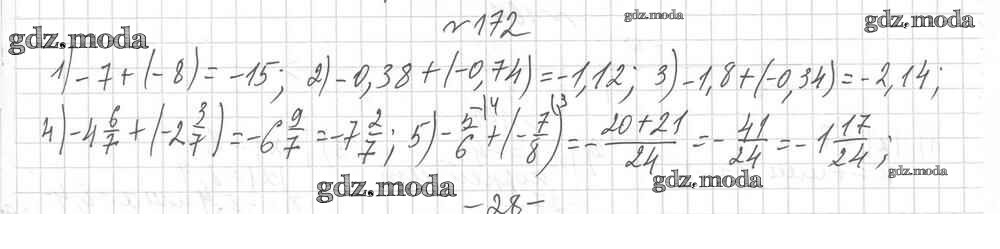 №172
gdz.moda
gdz.moda
gdz.moda
1) -7 + (-8) = -15; 2) -0,38 + (-0,74) = -1,12; 3) -1,8 + (-0,34) = -2,14;
4) -4 6/7 + (-2 3/7) = -6 9/7 = -7 2/7; 5) -5/6 \4 + (-7/8) \3 = -(20+21)/24 = -41/24 = -1 17/24;
gdz.moda
gdz.moda
gdz.moda
-28-